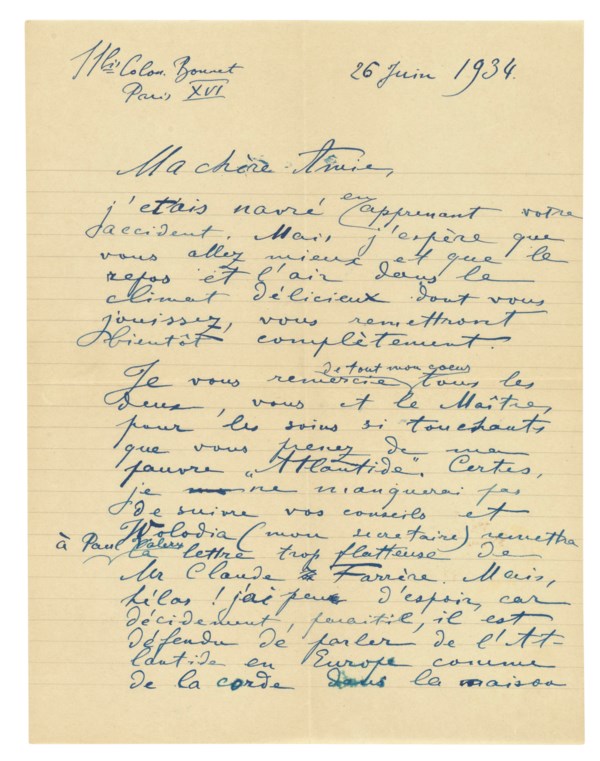 11bis Colon. Bonnet
Paris XVI
26 Juin 1934.
Ma chère Amie,
j'etais navré en apprenant votre
accident. Mais j'espère que
vous allez mieux et que le
repos et l'air dans le
climat délicieux dont vous
jouissez, vous remettront
bientôt complètement.
Je vous remercie de tout mon coeur tous les
deux, vous et le Maître,
pour les soins si touchants
que vous prenez de ma
pauvre „Atlantide". Certes,
je ne manquerai pas
de suivre vos conseils et
Wolodia (mon secretaire) remettra
à Paul Valery la lettre trop flatteuse de
Mr Claude Farrère. Mais,
hélas ! j'ai peu d'espoir, car
décidement, paraitil, il est
défendu de parler de l'At-
lantide en Europe comme
de la corde dans la maison